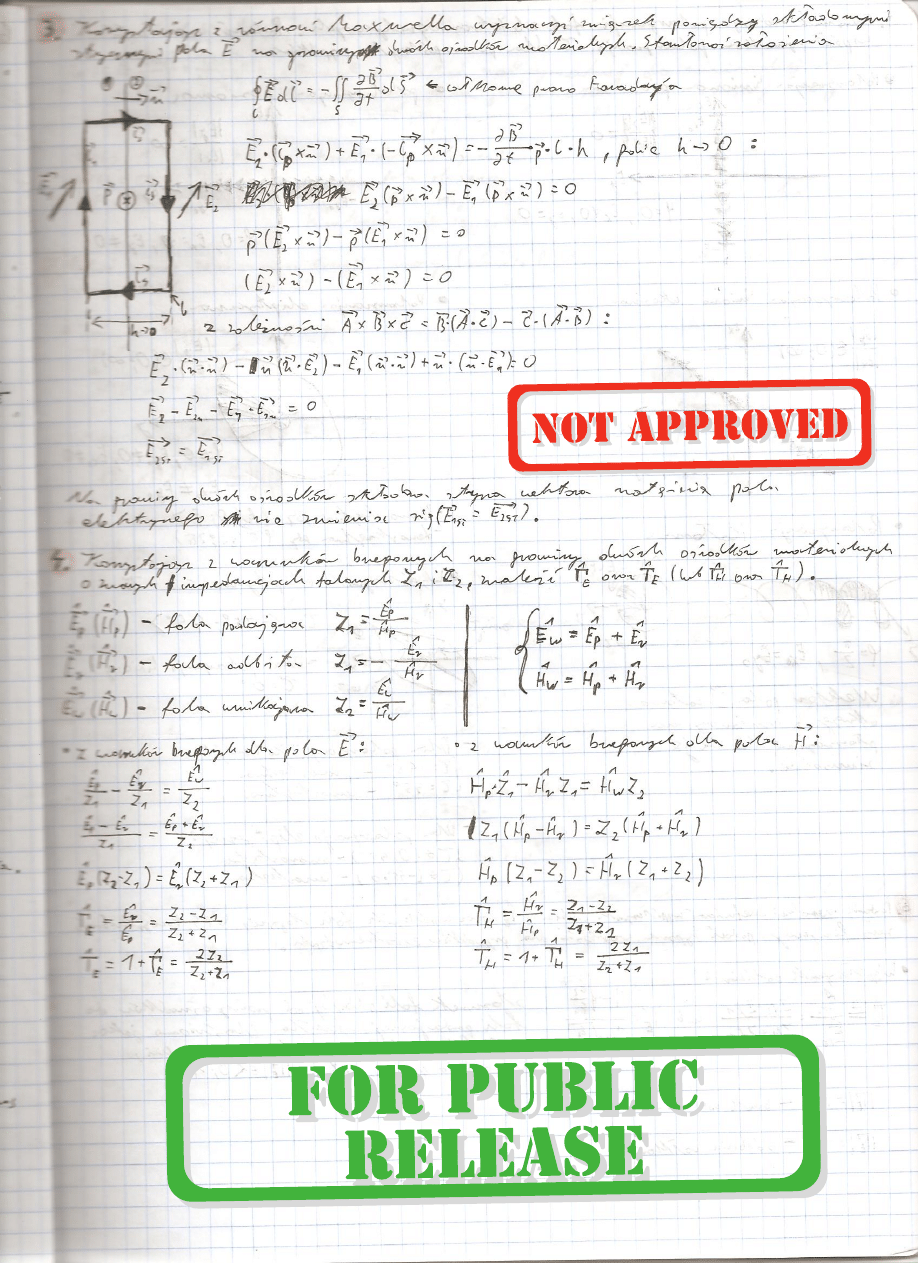 3. Korzystając z równań Maxwella wyznaczyć związek pomiędzy składowymi
stycznymi pola E⃗ na granicy dwóch ośrodków materialnych.
① ②
n⃗
∮ E⃗ dl⃗ = -∬ ∂B⃗/∂t dS⃗ ← prawo Faradaya
l S
E⃗₂·(l p⃗×n⃗) + E⃗₁·(-l p⃗×n⃗) = -∂B⃗/∂t·p⃗·l·h , h→0 :
E⃗₂(p⃗×n⃗) - E⃗₁(p⃗×n⃗) = 0
E⃗₁ p⃗ E⃗₂
p⃗(E⃗₂×n⃗) - p⃗(E⃗₁×n⃗) = 0
(E⃗₂×n⃗) - (E⃗₁×n⃗) = 0
l
h→0
z zależności A⃗×B⃗×C⃗ = B⃗·(A⃗·C⃗) - C⃗·(A⃗·B⃗) :
E⃗₂·(n⃗·n⃗) - n⃗(n⃗·E⃗₂) - E⃗₁(n⃗·n⃗) + n⃗·(n⃗·E⃗₁) = 0
E⃗₂ - E⃗₂ₙ - E⃗₁ · E⃗₂ₙ = 0
E⃗₂ST = E⃗₁ST
NOT APPROVED
Na granicy dwóch ośrodków składowa styczna wektora natężenia pola
elektrycznego nie zmienia się (E⃗₁ST = E⃗₂ST).
4. Korzystając z warunków brzegowych na granicy dwóch ośrodków materialnych
o znanych impedancjach falowych Z₁ i Z₂, znaleźć Γ̂E oraz T̂E (lub Γ̂H oraz T̂H).
Êp (Ĥp) - fala padająca Z₁ = Êp/Ĥp
Êr (Ĥr) - fala odbita Z₁ = - Êr/Ĥr
Êw (Ĥw) - fala wnikająca Z₂ = Êw/Ĥw
Êw = Êp + Êr
Ĥw = Ĥp + Ĥr
• z warunków brzegowych dla pola E⃗ :
Êp/Z₁ - Êr/Z₁ = Êw/Z₂
Êp - Êr/Z₁ = Êp + Êr/Z₂
Êp(Z₂-Z₁) = Êr(Z₂+Z₁)
Γ̂E = Êr/Êp = Z₂-Z₁/Z₂+Z₁
T̂E = 1 + Γ̂E = 2Z₂/Z₂+Z₁
• z warunków brzegowych dla pola H⃗ :
Ĥp·Z₁ - Ĥr Z₁ = Ĥw Z₂
Z₁(Ĥp-Ĥr) = Z₂(Ĥp+Ĥr)
Ĥp(Z₁-Z₂) = Ĥr(Z₁+Z₂)
Γ̂H = Ĥr/Ĥp = Z₁-Z₂/Z₂+Z₁
T̂H = 1 + Γ̂H = 2Z₁/Z₂+Z₁
FOR PUBLIC
RELEASE